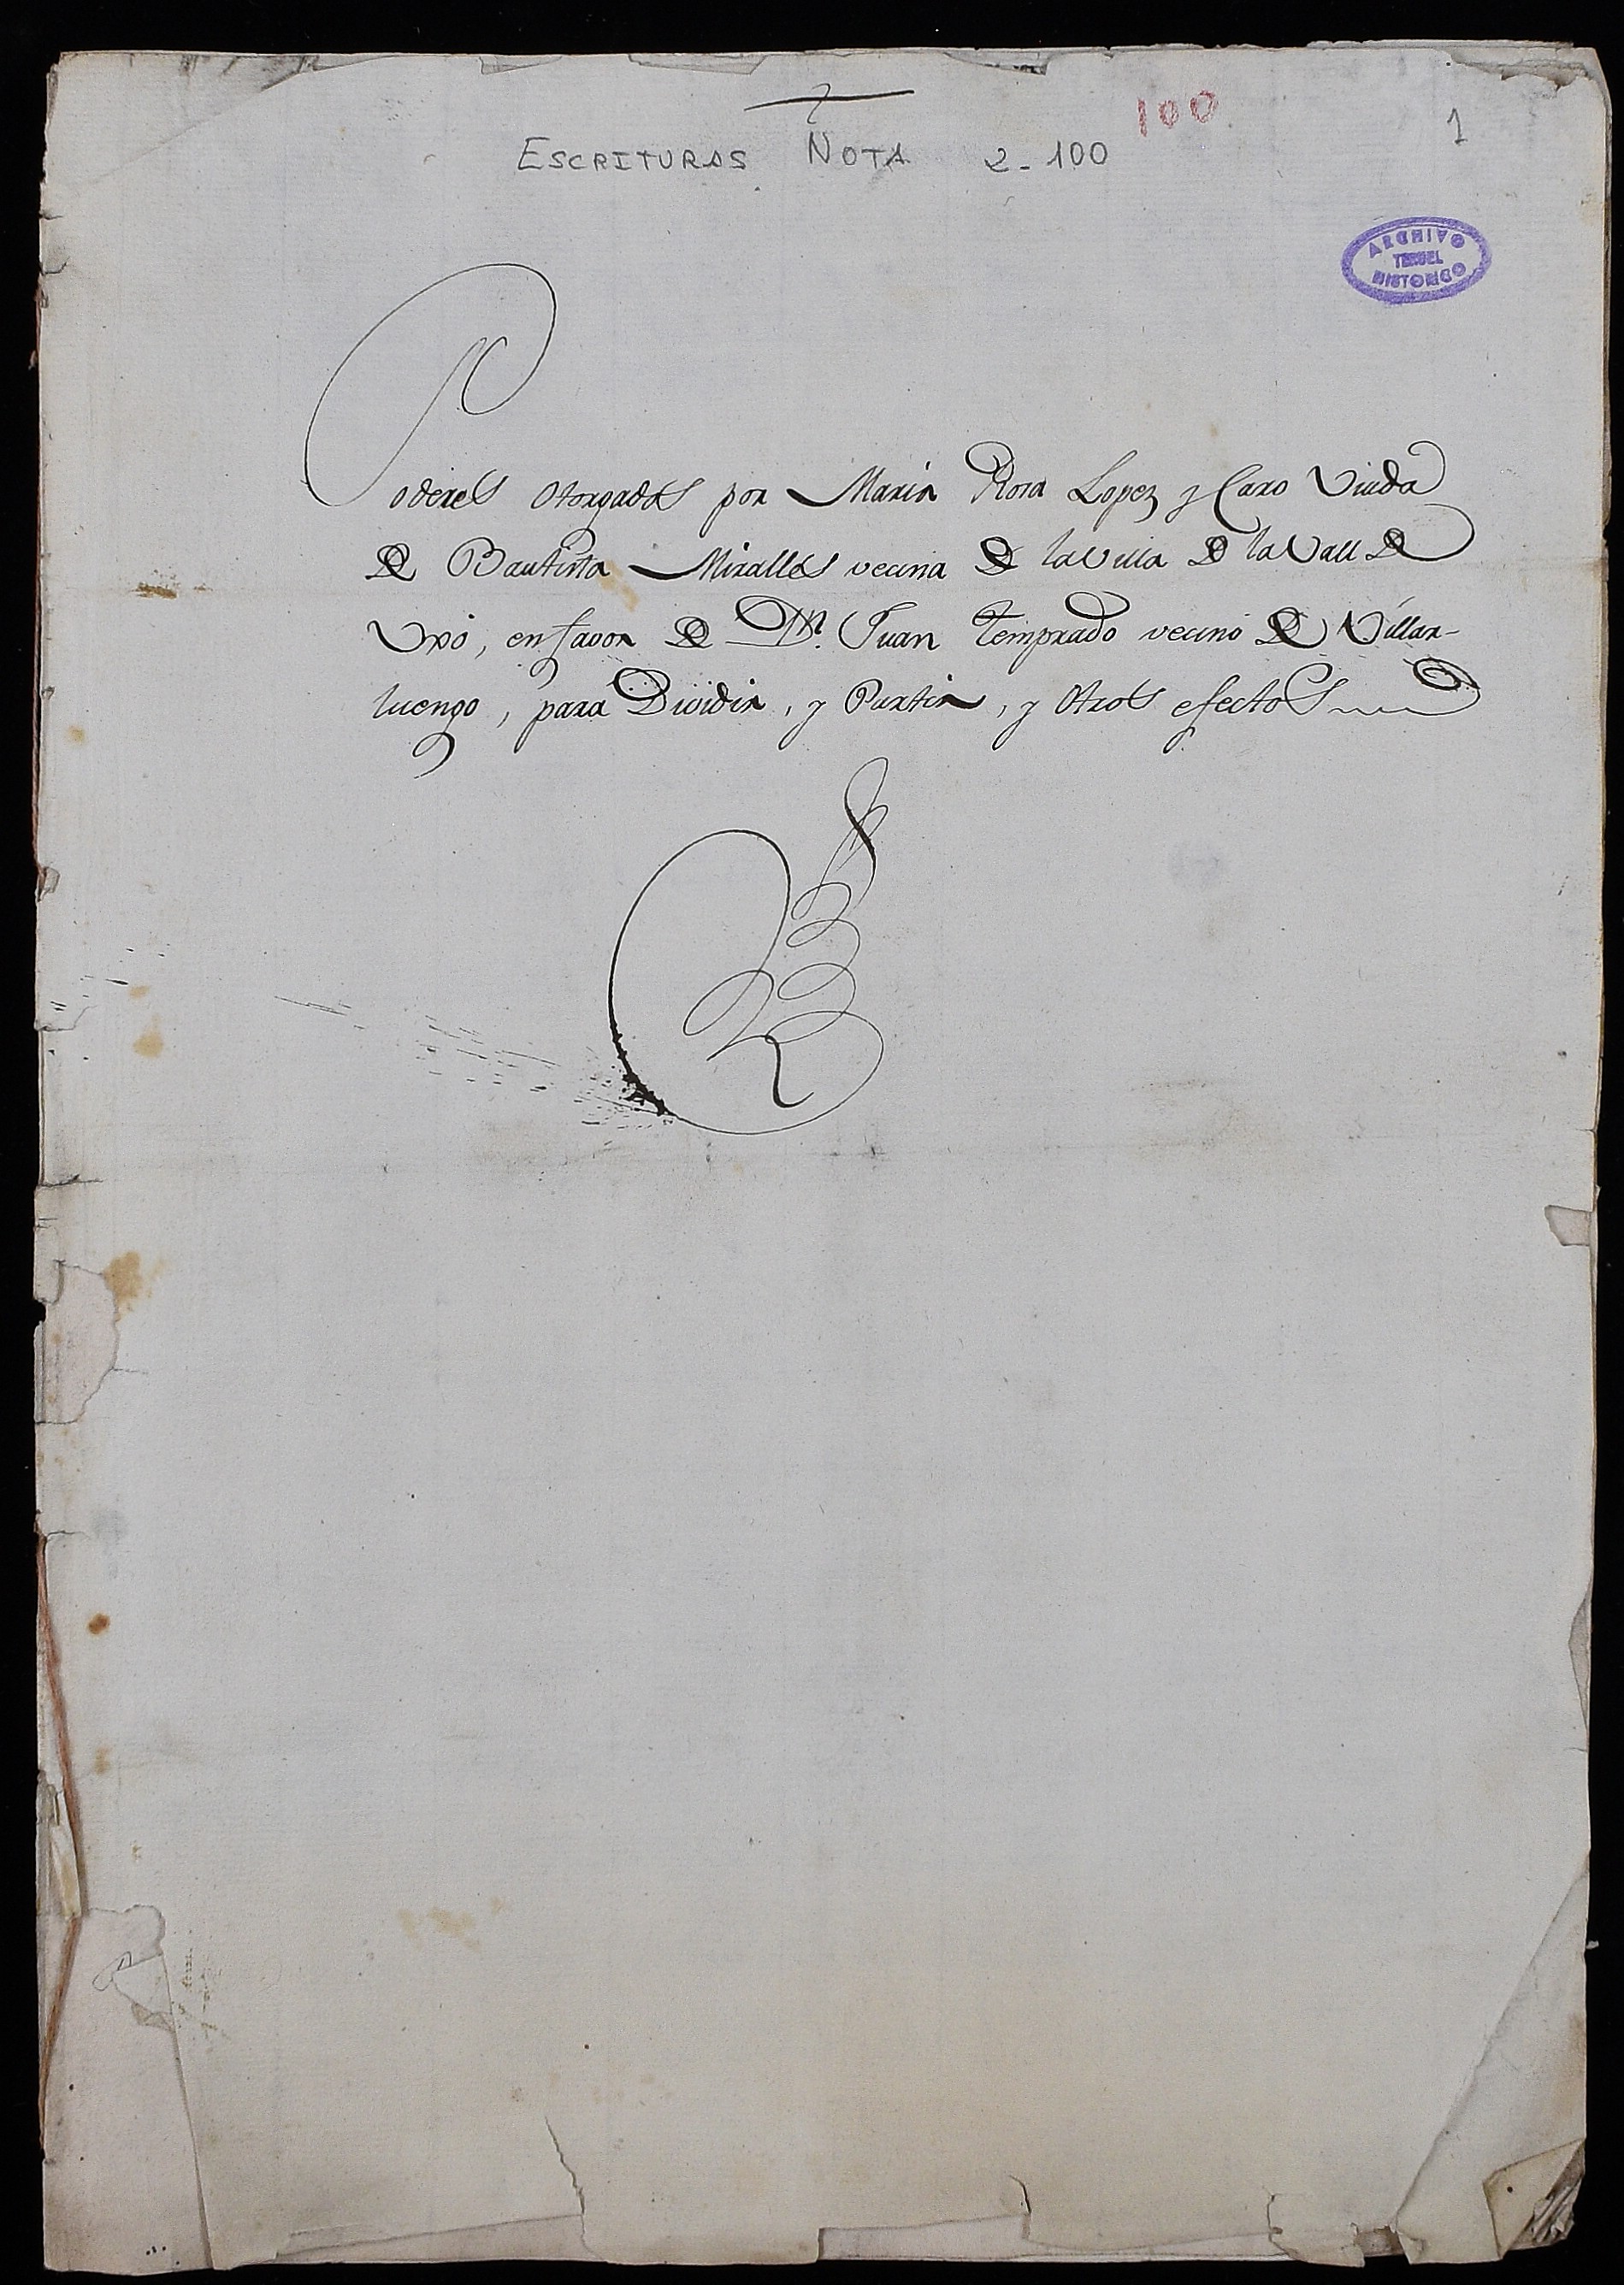 100
1
ESCRITURAS NOTA 2-100
ARCHIVO
TERUEL
HISTORICO
Poderes Otorgados por Maria Rosa Lopez y Caro Viuda
de Bautista Miralles vecina de la Villa de la Vall de
Uxó, en favor de Dn. Juan Temprado vecino de Villar-
luengo, para Dividir, y Partir, y Otros efectos